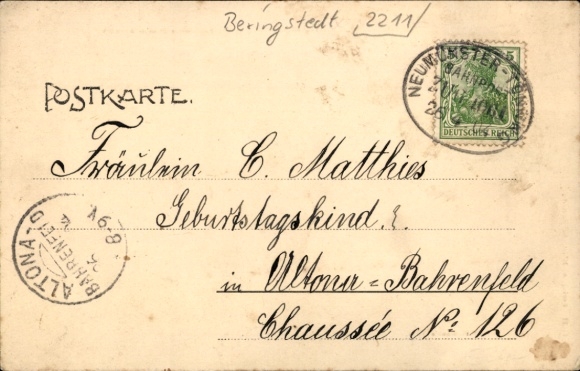 Beringstedt 2211/
POSTKARTE.
5
DEUTSCHES REICH
NEUMÜNSTER-
BAHNPOST
ZUG
Fräulein C. Matthies
Geburtstagskind.
in Altona=Bahrenfeld
Chaussée No: 126
ALTONA-
BAHRENFELD
8-9V.